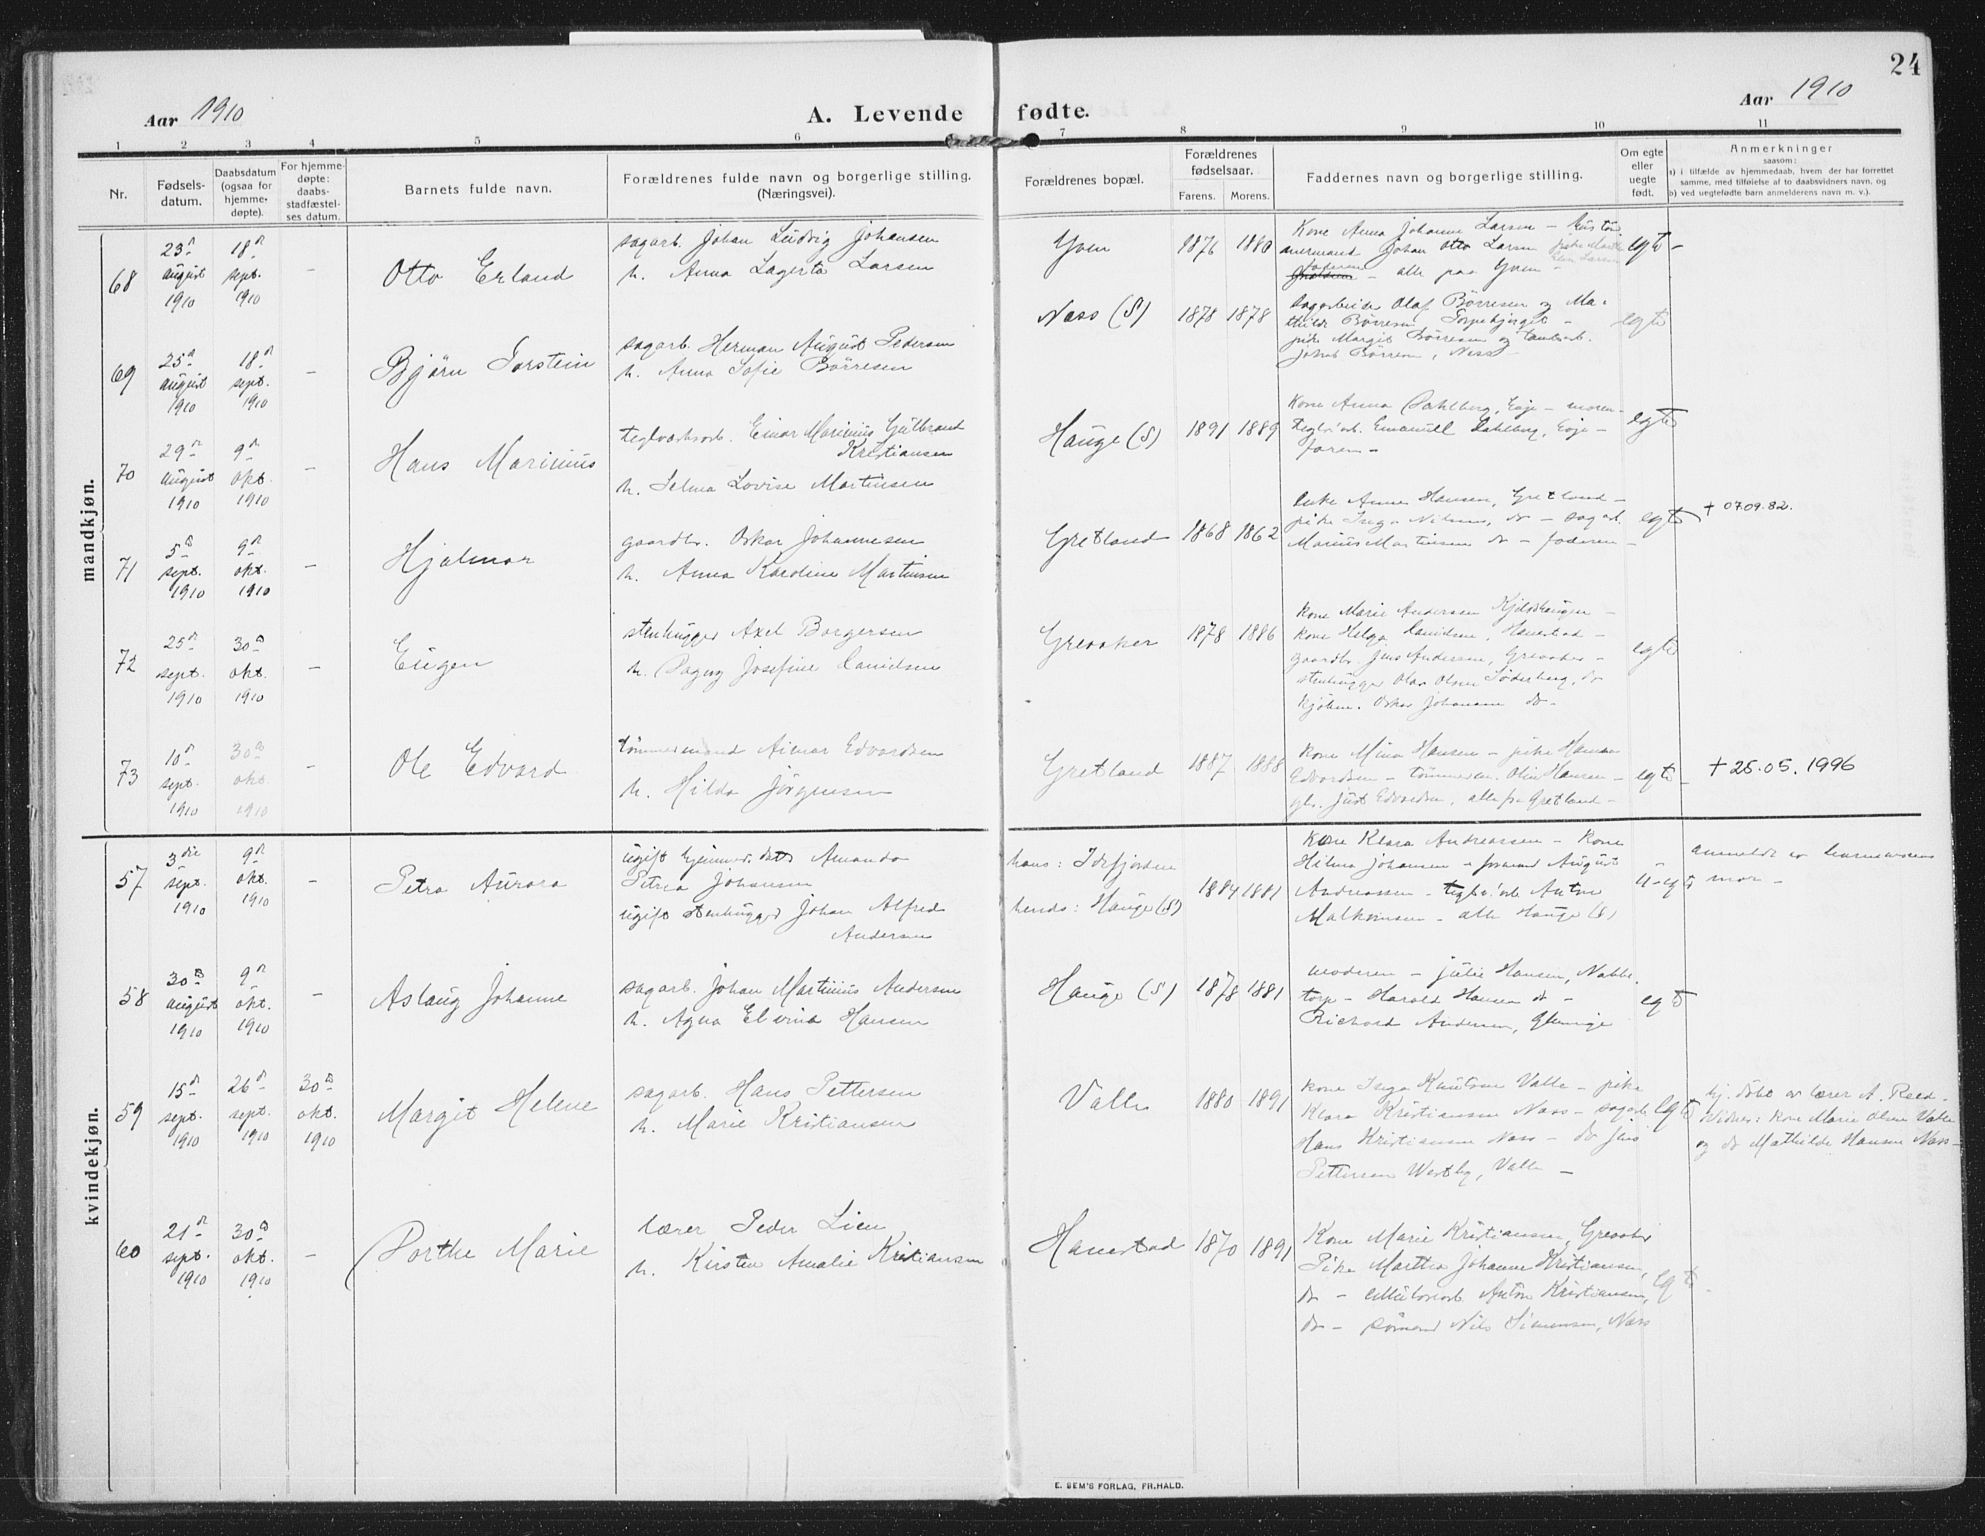 24
Aar 1910
A. Levende fødte.
Aar 1910
1 2 3 4 5 6 7 8 9 10 11
Nr.
Fødsels-
datum.
Daabsdatum
(ogsaa for
hjemme-
døpte).
For hjemme-
døpte:
daabs-
stadfæstel-
ses datum.
Barnets fulde navn.
Forældrenes fulde navn og borgerlige stilling.
(Næringsvei).
Forældrenes bopæl.
Forældrenes
fødselsaar.
Farens. Morens.
Faddernes navn og borgerlige stilling.
Om egte
eller
uegte
født.
Anmerkninger
saasom:
a) i tilfælde av hjemmedaab, hvem der har forrettet
samme, med tilføielse af to daabsvidners navn, og
b) ved uegtefødte barn anmelderens navn m. v.).
mandkjøn.
68
23
august
1910
18
sept.
1910
–
Otto Erland
sagarb. Johan Ludvig Johansen
h. Anna Lagerta Larsen
Yven
1876 1880
Kone Anna Johanne Larsen –
Johan Otto Larsen
faderen – alle paa Yven –
egte –
69
25
august
1910
18
sept.
1910
–
Bjørn Torstein
sagarb. Herman August Pedersen
h. Anna Sofie Børresen
Næss (S)
1878 1878
sagarbeider Olaf Børresen og Ma-
thilde Børresen
pike Margit Børresen og
Jakob Børresen, Ness –
egte
70
29
august
1910
9
okt.
1910
–
Hans Marinius
Einar Marinius Gulbrand
Kristiansen
h. Selma Lovise Martinsen
Hauge (S)
1891 1889
Kone Anna Dahlberg, Enje – moren –
teglv.arb. Emanuell Dahlberg, Enje –
faren –
egte
71
5
sept.
1910
9
okt.
1910
–
Hjalmar
gaardbr. Oskar Johannesen
h. Anna Karoline Martinsen
Gretland
1868 1862
enke Anne Hansen, Gretland –
pike Inga Nilsen, do – sagarb.
Marius Martinsen do – faderen –
egte
+ 07.09.82.
72
25
sept.
1910
30
okt.
1910
–
Eugen
stenhugger Axel Borgersen
h. Dagny Josefine Danielsen
Greaaker
1878 1886
kone Marie Andersen
kone Helga Danielsen, Hanestad –
gaardbr. Jens Andersen, Greaaker –
stenhugger Olav Olsen Søderberg, do
Oskar Johansen do –
egte
73
10
sept.
1910
30
okt.
1910
–
Ole Edvard
tømmermand Aimar Edvardsen
h. Hilda Jørgensen
Gretland
1887 1888
kone Mina Hansen – pike Hanna
Edvardsen – tømmerm. Olin Hansen –
gbr. Just Edvardsen, alle fra Gretland –
egte –
+ 25.05.1996
kvindekjøn.
57
3die
sept.
1910
9
okt.
1910
–
Petra Aurora
ugift hjemmev. datt. Amanda
Petrea Johansen
ugift stenhugger Johan Alfred
Andersen
hans: Idefjorden
hends: Hauge (S)
1884 1881
Kone Klara Andreassen – kone
Hilma Johansen – formand August
Andreassen – teglv.arb. Anton
Malkomsen – alle Hauge (S)
u-egte
anmeldt av barnemoderens
mor –
58
30
august
1910
9
okt.
1910
–
Aslaug Johanne
sagarb. Johan Martinius Andersen
h. Agna Elvina Hansen
Hauge (S)
1878 1881
moderen – Julie Hansen, Nabbe-
torp – Harald Hansen do –
Richard Andersen, Glemmige
egte
59
15
sept.
1910
26
sept.
1910
30
okt.
1910
Margit Helene
sagarb. Hans Pettersen
h. Marie Kristiansen
Valle
1880 1891
kone Inga Knutsen Valle – pike
Klara Kristiansen Næss – sagarb.
Hans Kristiansen Næss – do Jens
Pettersen Westby, Valle –
egte
hj. døbt av lærer A. Reed –
Vidner: kone Marie Olsen Valle
og do Mathilde Hansen Næss –
60
21
sept.
1910
30
okt.
1910
–
Dorthe Marie
lærer Peder Lien
h. Kirsten Amalie Kristiansen
Hanestad
1870 1891
Kone Marie Kristiansen, Greaaker
Pike Martha Johanne Kristiansen,
do – Anton Kristiansen,
do – sømand Nils Simensen, Næss
egte.
E. SEM'S FORLAG, FR.HALD.